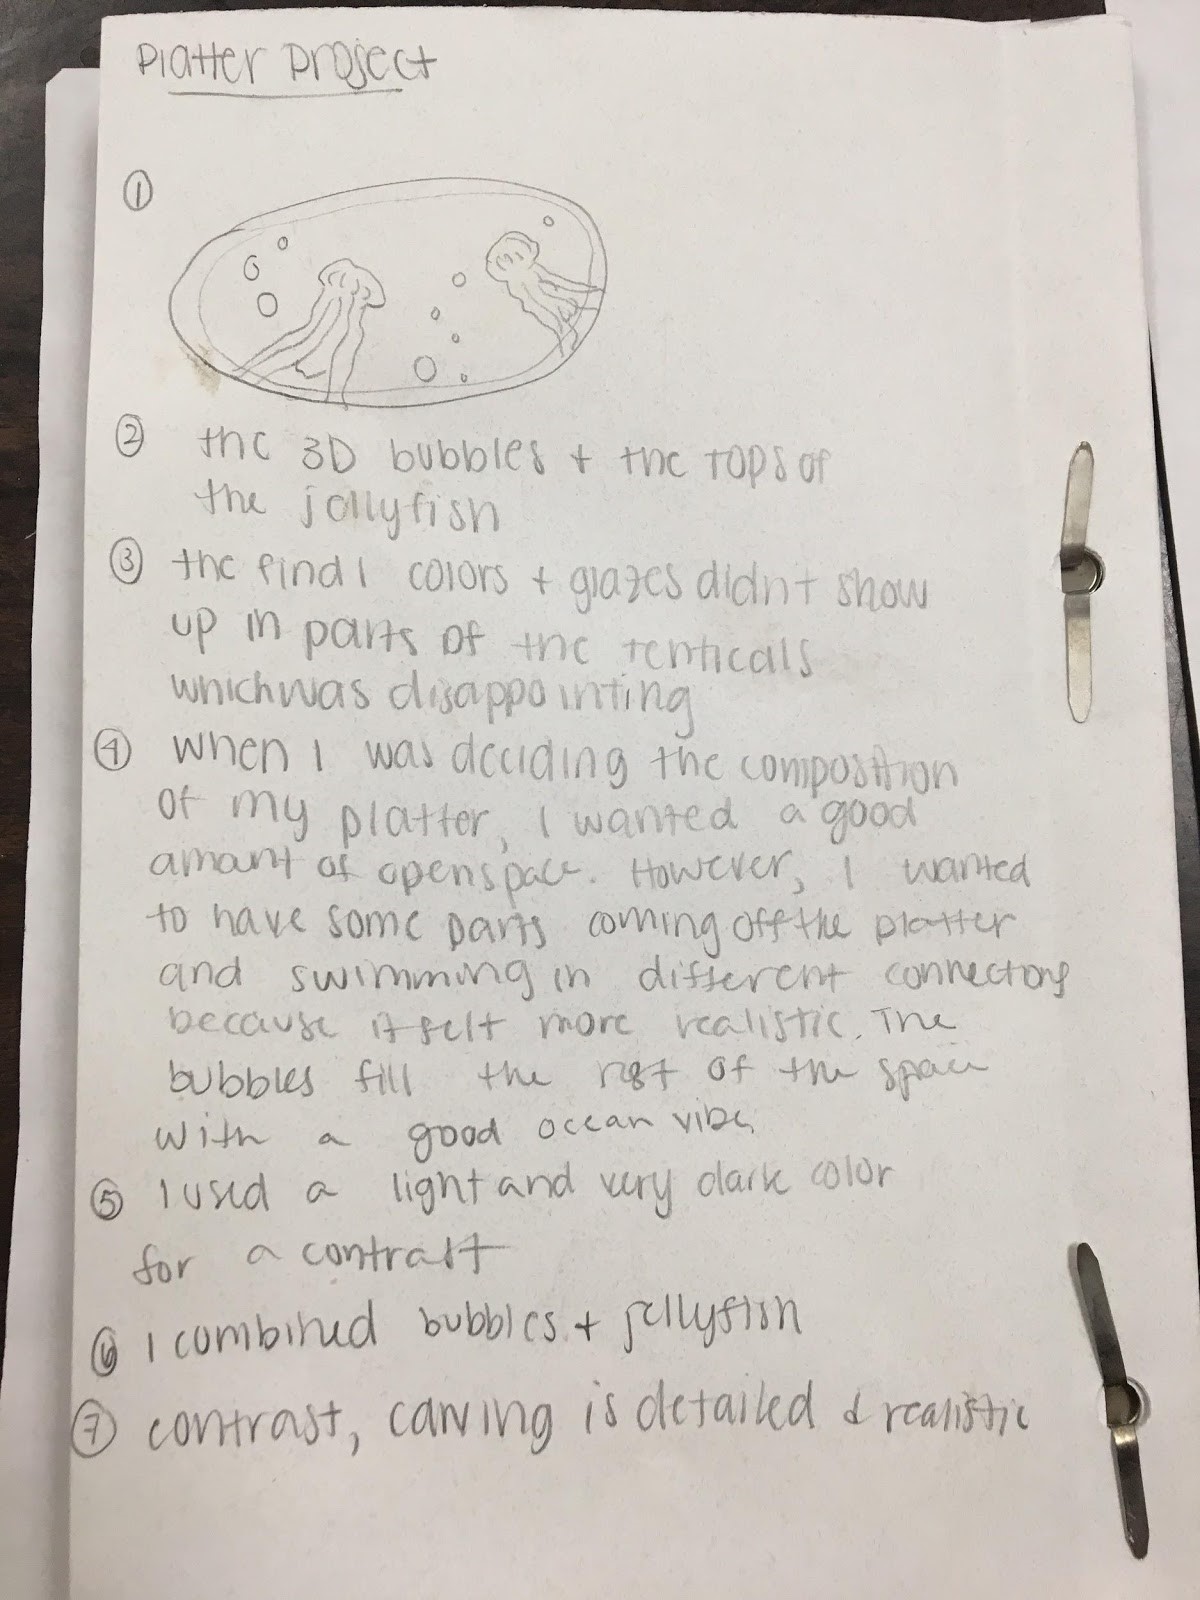 Platter Project
①
② the 3D bubbles + the tops of
the jellyfish
③ the final colors + glazes didnt show
up in parts of the tenticals
which was disappointing
④ When I was deciding the composition
of my platter, I wanted a good
amount of open space. However, I wanted
to have some parts coming off the platter
and swimming in different connections
because it felt more realistic. The
bubbles fill the rest of the space
with a good ocean vibe.
⑤ I used a light and very dark color
for a contrast
⑥ I combined bubbles + jellyfish
⑦ contrast, carving is detailed & realistic